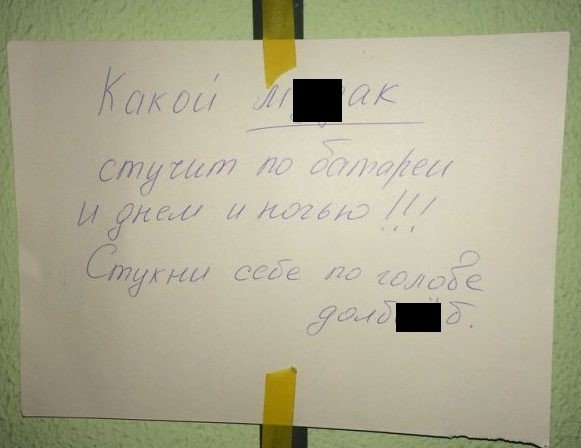 Какой м
стучит по батареи
и днем и ночью!!!
Стукни себе по голове